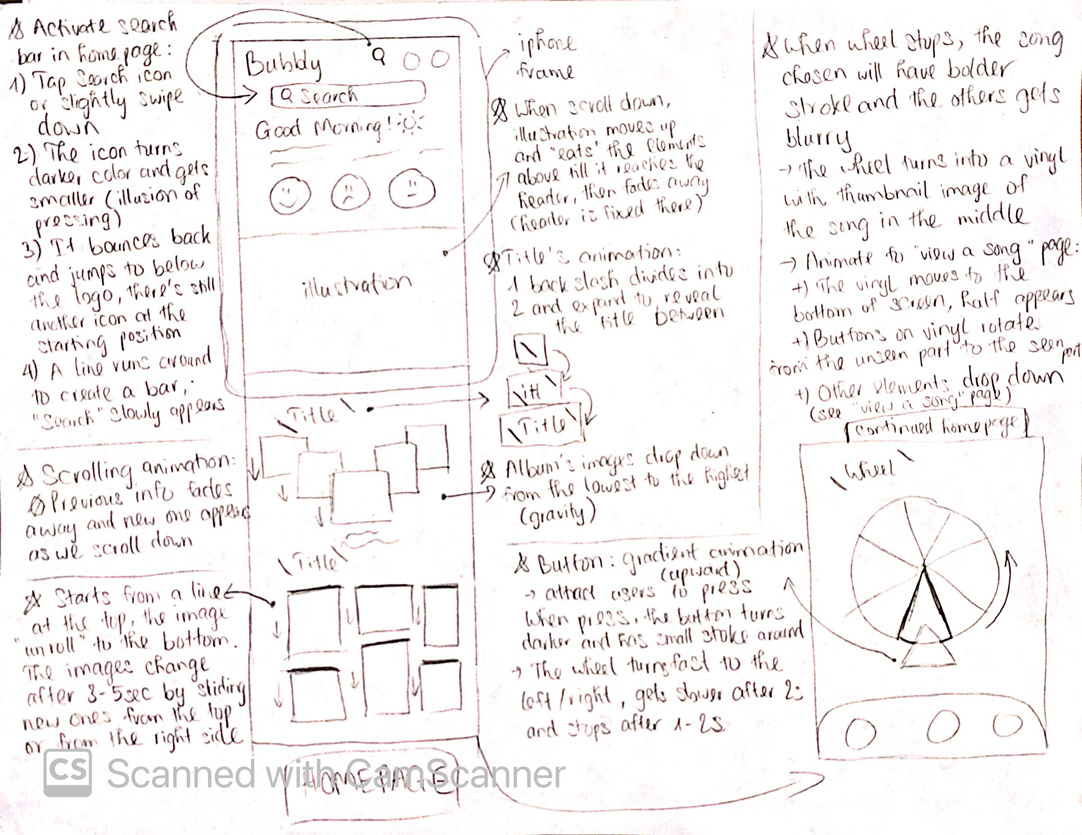 Activate search
bar in home page:
1) Tap Search icon
or slightly swipe
down
2) The icon turns
darker color and gets
smaller (illusion of
pressing)
3) It bounces back
and jumps to below
the logo, there's still
another icon at the
starting position
4) A line runs around
to create a bar,
"Search" slowly appears
Scrolling animation:
Previous info fades
away and new one appears
as we scroll down
Starts from a line
at the top, the image
"unroll" to the bottom.
The images change
after 3-5sec by sliding
new ones from the top
or from the right side
Bubbly
Search
Good Morning!
illustration
\Title\
\Title\
HOMEPAGE
iphone
frame
When scroll down,
illustration moves up
and "eats" the elements
above till it reaches the
header, then fades away
(header is fixed there)
Title's animation:
1 back slash divides into
2 and expand to reveal
the title between
\
\itl\
\Title\
Album's images drop down
from the lowest to the highest
(gravity)
Button: gradient animation
(upward)
→ attract users to press
When press, the button turns
darker and has small stoke around
→ The wheel turns fast to the
left/right, gets slower after 2s
and stops after 1-2s
When wheel stops, the song
chosen will have bolder
stroke and the others gets
blurry
→ The wheel turns into a vinyl
with thumbnail image of
the song in the middle
→ Animate to "view a song" page:
+) The vinyl moves to the
bottom of screen, half appears
+) Buttons on vinyl rotate
from the unseen part to the seen part
+) Other elements drop down
(see "view a song" page)
continued homepage
\Wheel\
CS Scanned with CamScanner